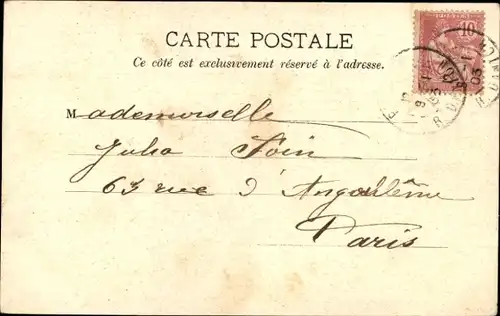 CARTE POSTALE
10
Ce côté est exclusivement réservé à l'adresse.
Mademoiselle
Julia Foin
63 rue d'Angoulême
Paris